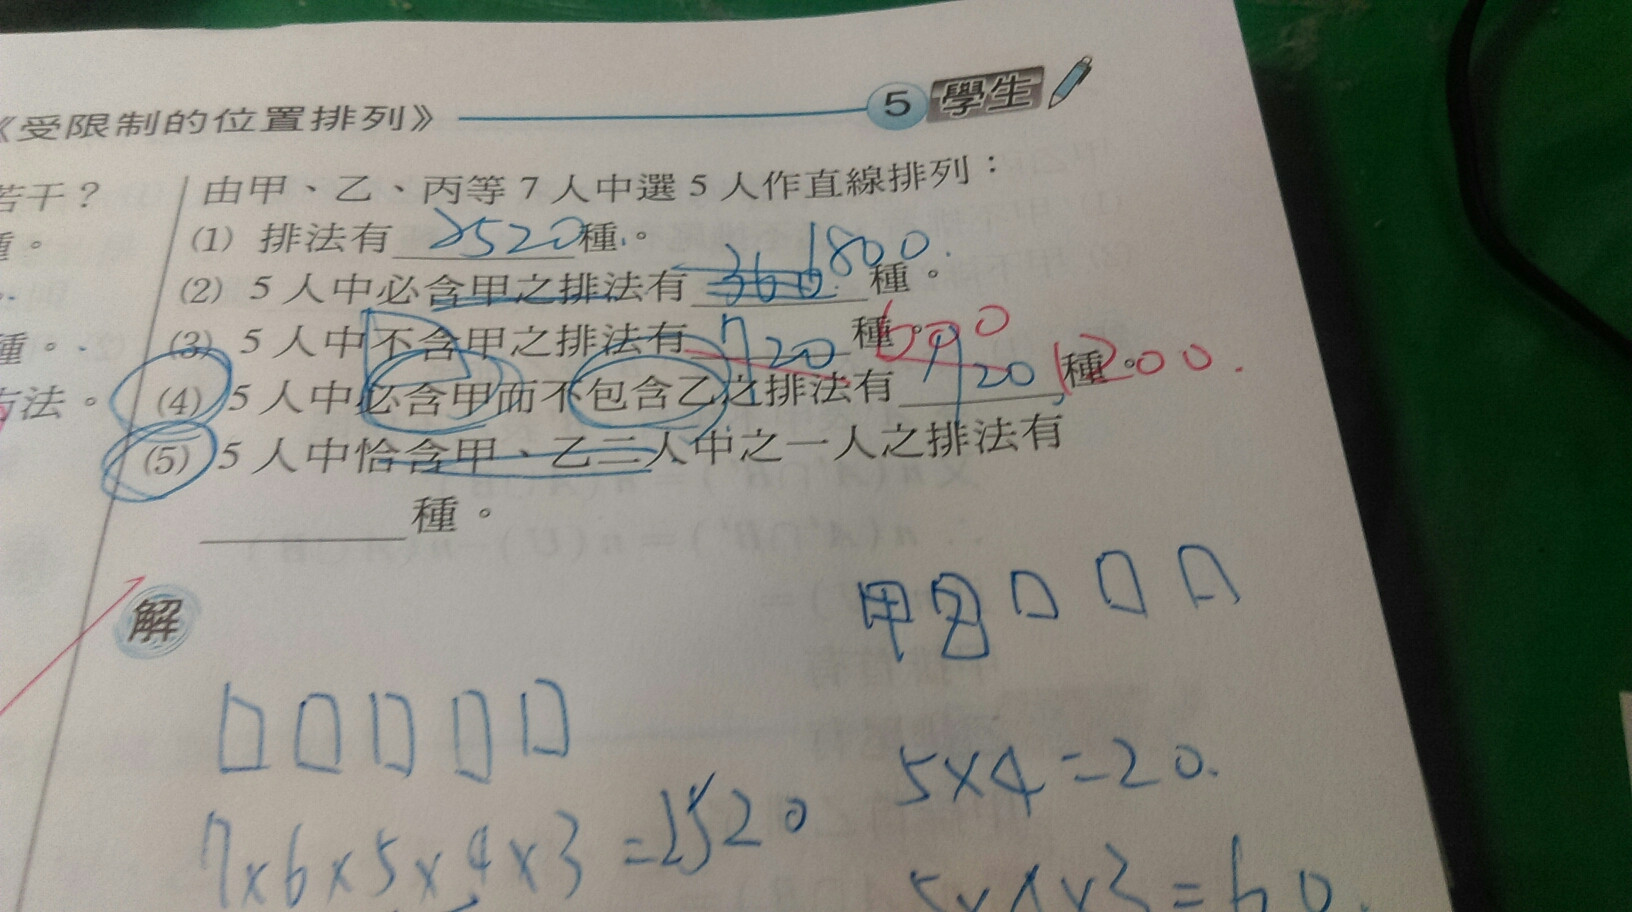 《受限制的位置排列》 5 學生
若干？
由甲、乙、丙等 7 人中選 5 人作直線排列：
(1) 排法有 2520 種。
種。
(2) 5 人中必含甲之排法有 360 1800. 種。
(3) 5 人中不含甲之排法有 720 種。
種。
(4) 5 人中必含甲而不包含乙之排法有 720 種。 1200.
方法。
(5) 5 人中恰含甲、乙二人中之一人之排法有
種。
解
甲
5×4=20.
7×6×5×4×3=2520
5×4×3=60.